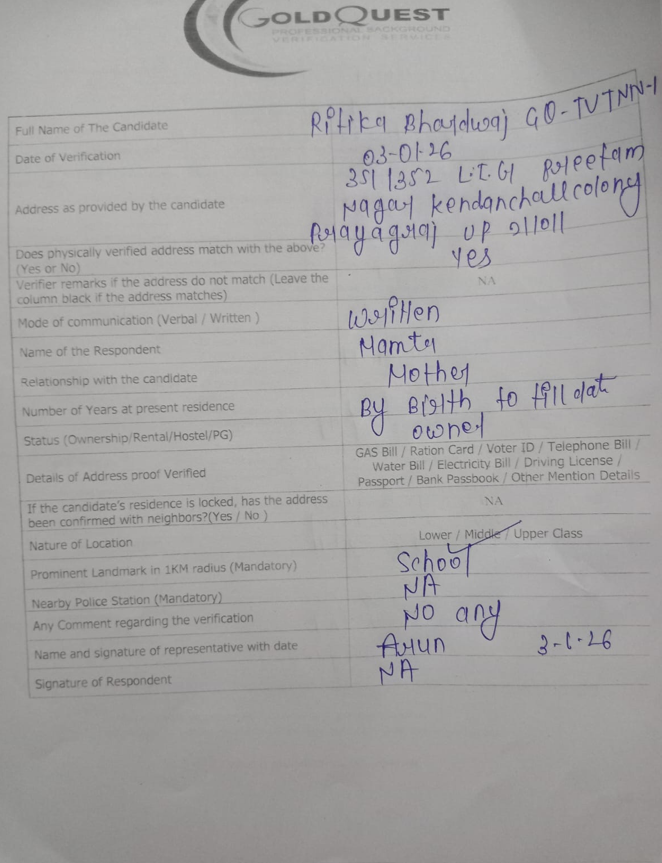 GOLDQUEST
PROFESSIONAL BACKGROUND
VERIFICATION SERVICES
Full Name of The Candidate Ritika Bhardwaj GQ-TVTNN-1
Date of Verification 03-01-26
Address as provided by the candidate 351/352 L.I.G Preetam
Nagar Kendanchall colony
Prayagraj UP 211011
Does physically verified address match with the above?
(Yes or No) Yes
Verifier remarks if the address do not match (Leave the
column black if the address matches) NA
Mode of communication (Verbal / Written ) Written
Name of the Respondent Mamta
Relationship with the candidate Mother
Number of Years at present residence By Birth to till dat
Status (Ownership/Rental/Hostel/PG) owner
Details of Address proof Verified GAS Bill / Ration Card / Voter ID / Telephone Bill /
Water Bill / Electricity Bill / Driving License /
Passport / Bank Passbook / Other Mention Details
If the candidate's residence is locked, has the address
been confirmed with neighbors?(Yes / No ) NA
Nature of Location Lower / Middle / Upper Class
Prominent Landmark in 1KM radius (Mandatory) School
Nearby Police Station (Mandatory) NA
Any Comment regarding the verification NO any
Name and signature of representative with date Arun 3-1-26
Signature of Respondent NA